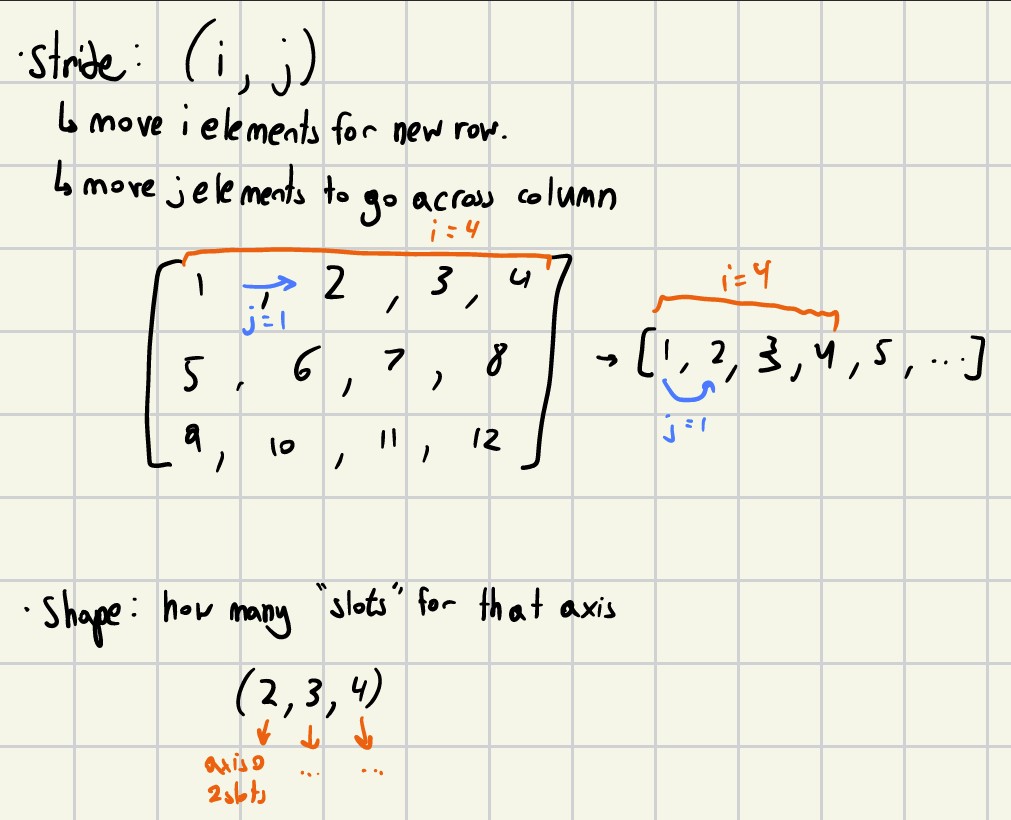 · Stride: (i, j)
↳ move i elements for new row.
↳ move j elements to go across column
i = 4
[ 1 → , 2 , 3 , 4
j = 1
5 , 6 , 7 , 8
9 , 10 , 11 , 12 ]
i = 4
→ [ 1, 2, 3, 4, 5, ... ]
j = 1
· Shape: how many "slots" for that axis
(2, 3, 4)
↓ ↓ ↓
axis 0 ... ...
2 slots